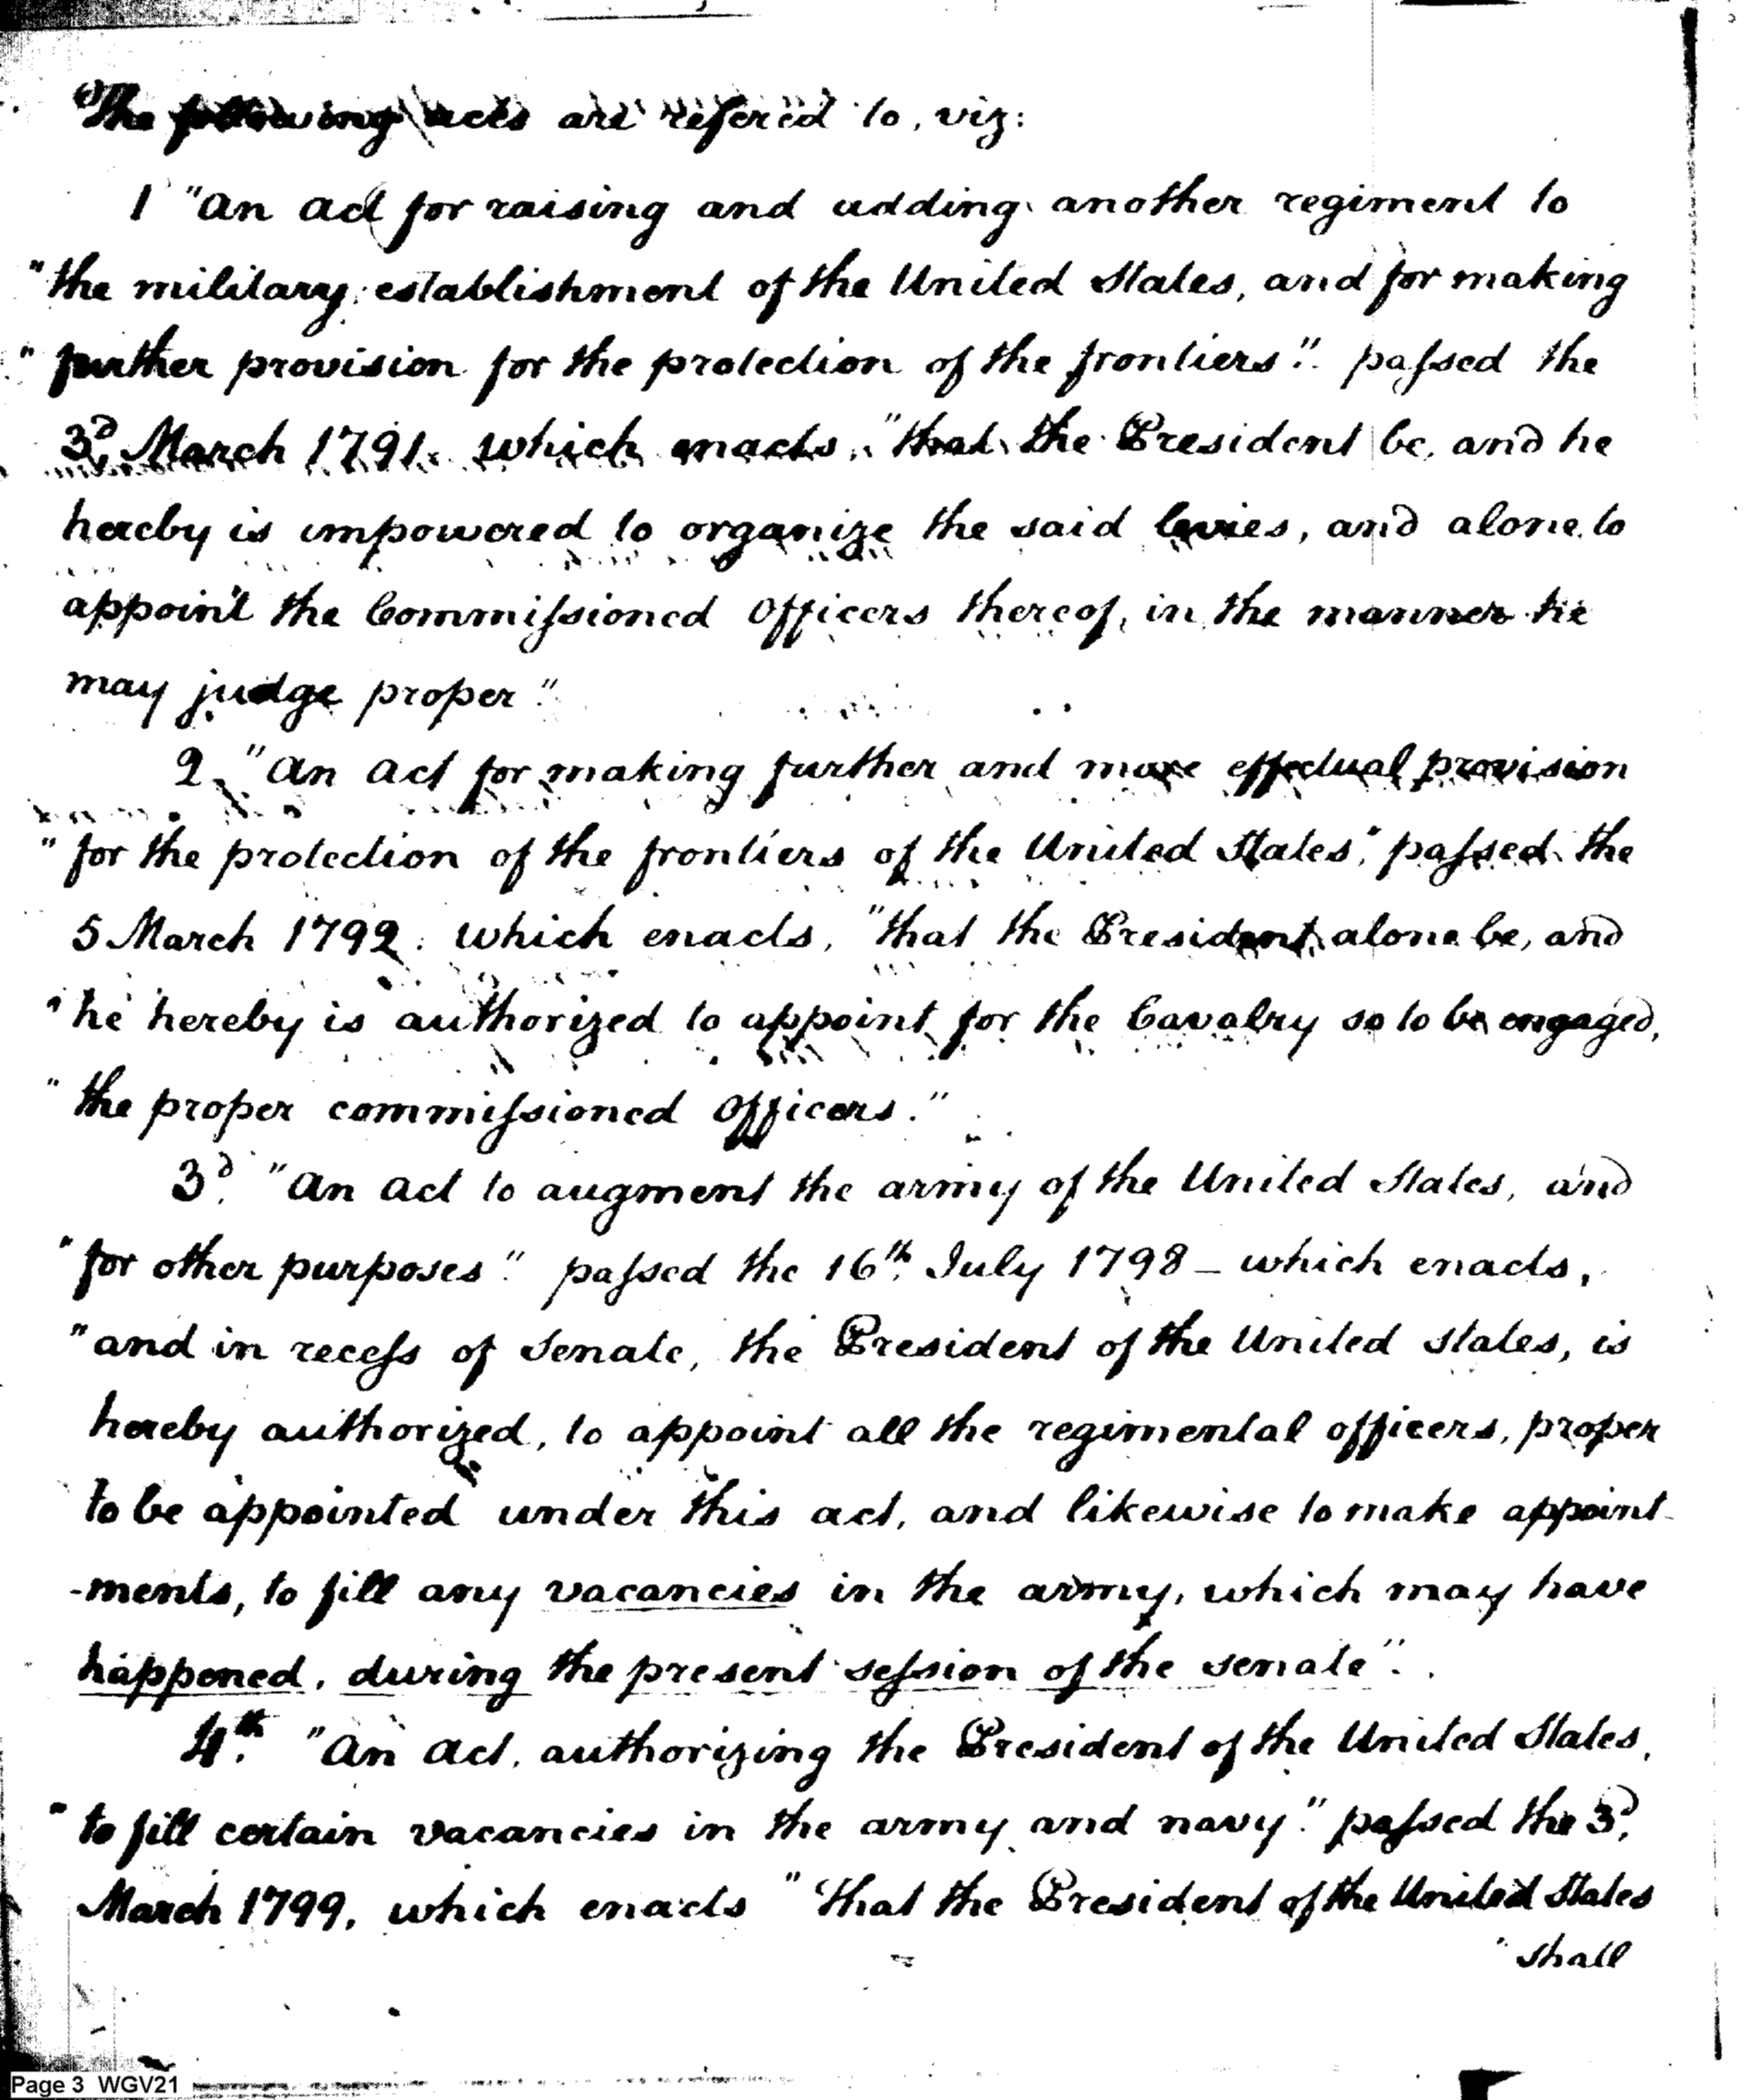 The following acts are refered to, viz:
1 "An act for raising and adding another regiment to
"the military establishment of the United States, and for making
"further provision for the protection of the frontiers". passed the
3d. March 1791. which enacts, "that the President be, and he
hereby is impowered to organize the said levies, and alone to
appoint the Commissioned Officers thereof, in the manner he
may judge proper".
2. "An act for making further and more effectual provision
"for the protection of the frontiers of the United States," passed the
5 March 1792. which enacts, "that the President alone be, and
"he hereby is authorized to appoint for the Cavalry so to be engaged,
"the proper commissioned Officers."
3d. "An act to augment the army of the United States, and
"for other purposes". passed the 16th. July 1798 – which enacts,
"and in recess of Senate, the President of the United States, is
hereby authorized, to appoint all the regimental officers, proper
to be appointed under this act, and likewise to make appoint-
-ments, to fill any vacancies in the army, which may have
happened, during the present session of the senate".
4th. "An act, authorizing the President of the United States,
"to fill certain vacancies in the army and navy". passed the 3d.
March 1799, which enacts "that the President of the United States
"shall
Page 3 WGV21